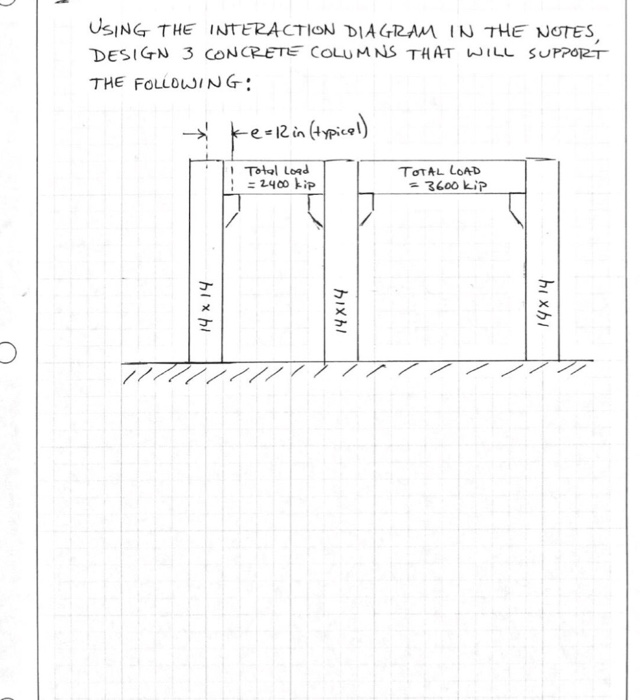 USING THE INTERACTION DIAGRAM IN THE NOTES,
DESIGN 3 CONCRETE COLUMNS THAT WILL SUPPORT
THE FOLLOWING:
e=12in (typical)
Total Load
= 2400 kip
TOTAL LOAD
= 3600 kip
14 x 14
14x14
14x14